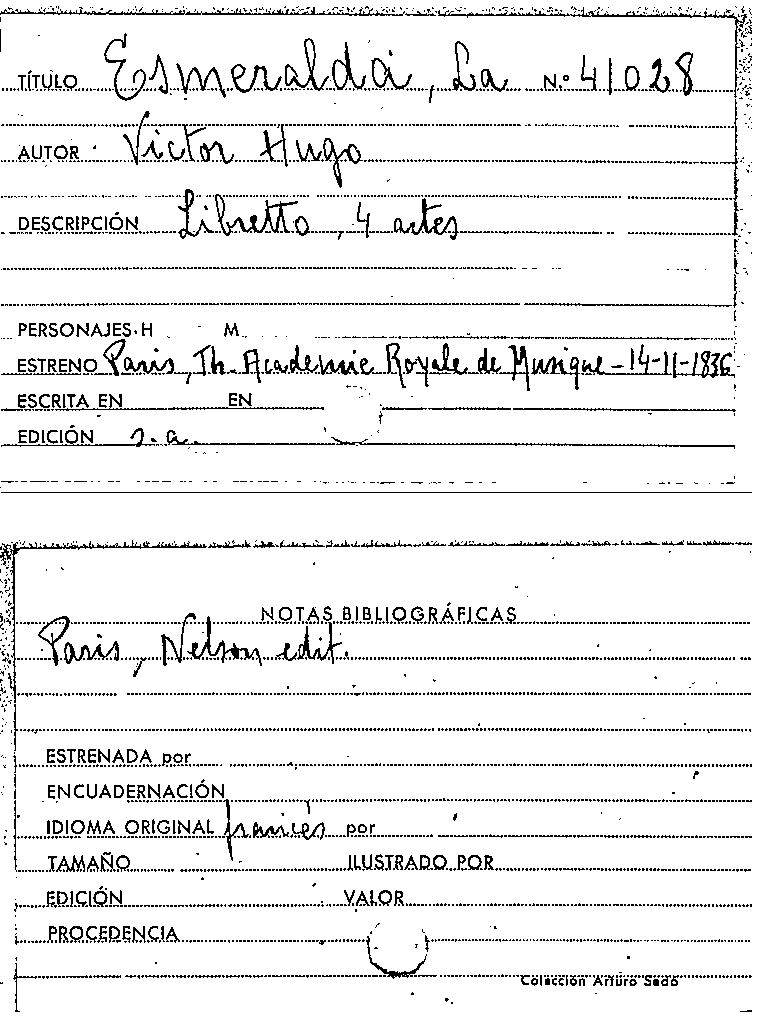 TÍTULO Esmeralda, La N.º 41028
AUTOR Victor Hugo
DESCRIPCIÓN Libretto, 4 actes
PERSONAJES·H M
ESTRENO Paris, Th. Academie Royale de Musique - 14-11-1836
ESCRITA EN EN
EDICIÓN s.a.
NOTAS BIBLIOGRÁFICAS
Paris, Nelson edit.
ESTRENADA por
ENCUADERNACIÓN
IDIOMA ORIGINAL francés por
TAMAÑO ILUSTRADO POR
EDICIÓN VALOR
PROCEDENCIA
Colección Arturo Sedó